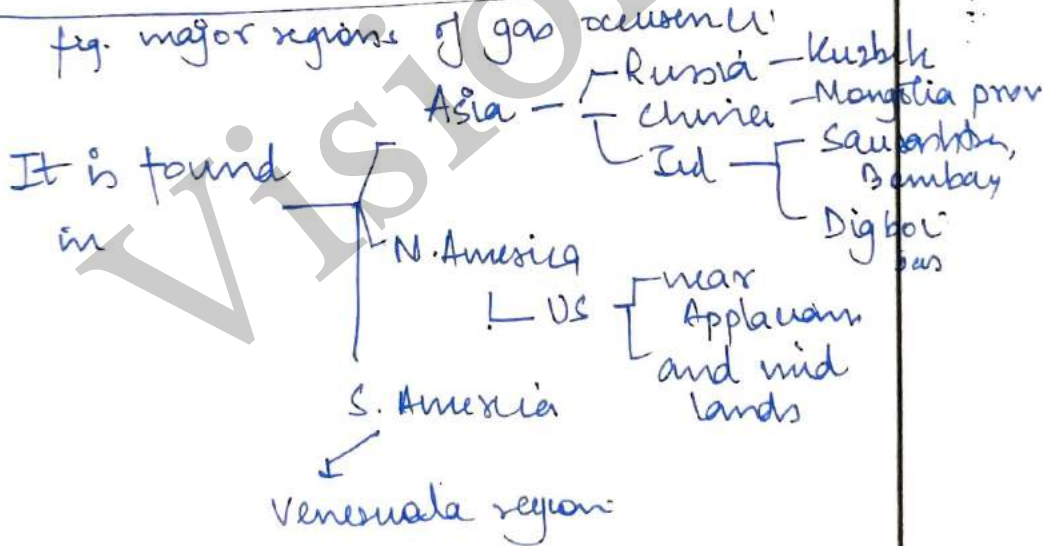 fig. major regions of gas occurence
Asia
Russia - Kuzbik
China - Mongolia prov
Ind
Saurashtra,
Bombay
Digboi
It is found
in
N. America
US
near
Applauans
and mid
lands
S. America
Venezuala region
Vision